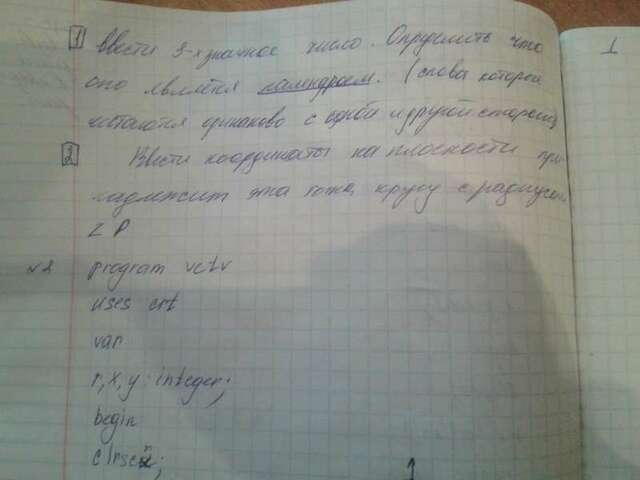 1 ввести 5-хзначное число. Определить что
оно является палиндром. (слова которой
читаются одинаково с одной и другой стороны
2 Ввести координаты на плоскости при-
надлежит эта точка кругу с радиусом
z P
№2 program vctv
uses crt
var
r, x, y : integer;
begin
clrscr;
1
1